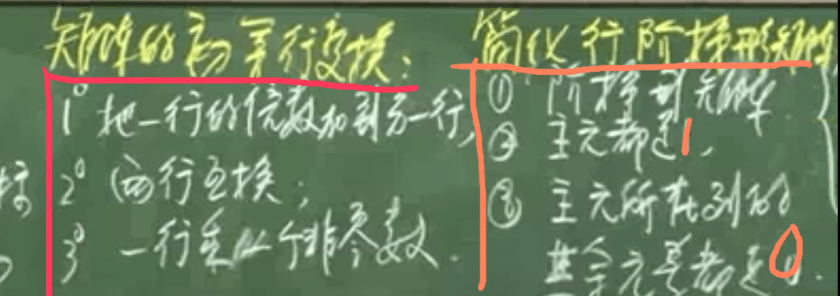 矩阵的初等行变换:
1° 把一行的倍数加到另一行,
2° 两行互换;
3° 一行乘以个非零数.
简化行阶梯形矩阵
① 阶梯形矩阵.
② 主元都是1,
③ 主元所在列的
其余元素都是0.